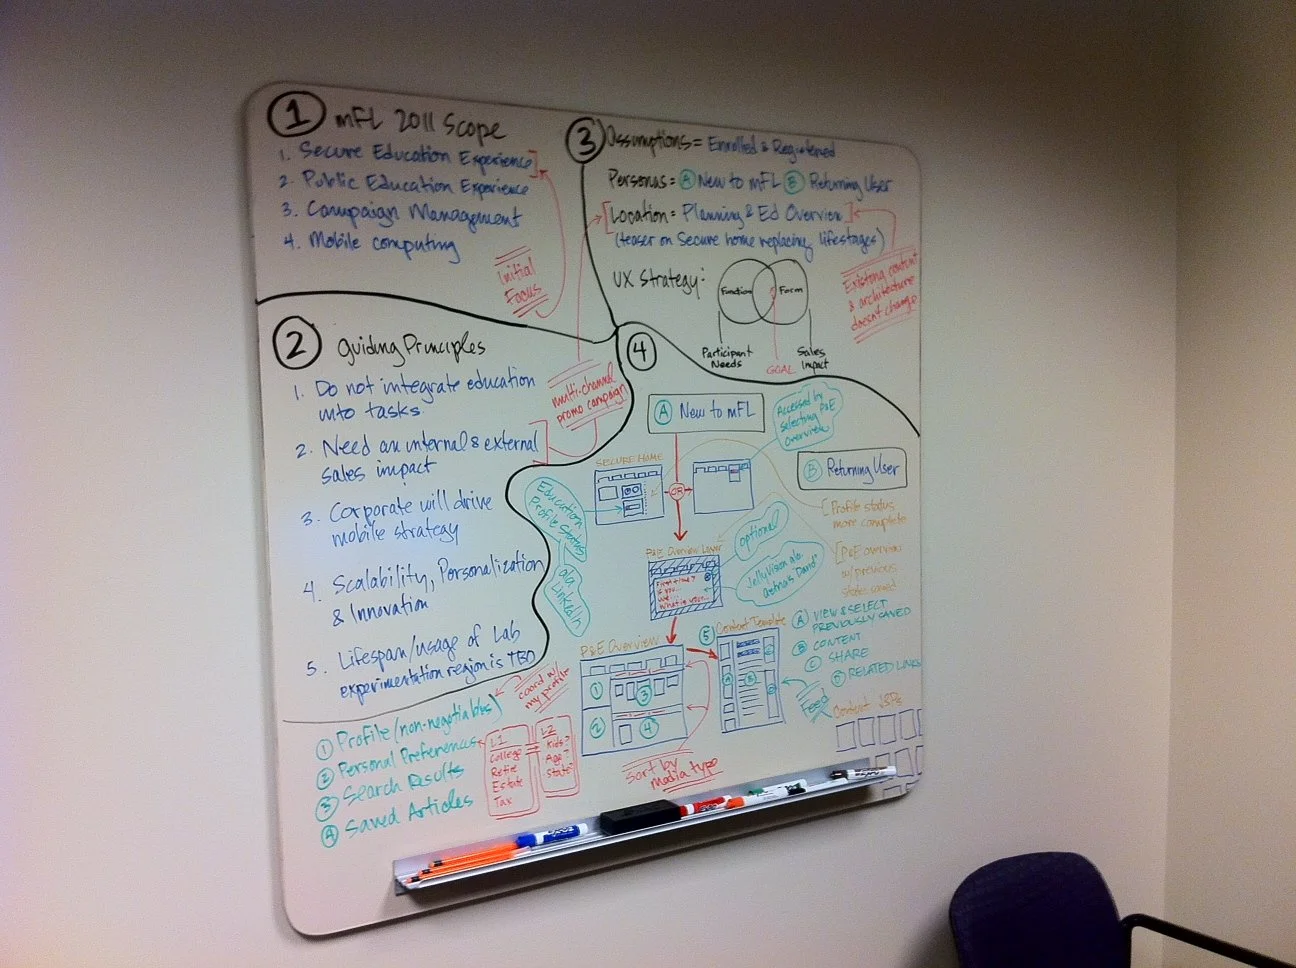 1 mFL 2011 Scope
1. Secure Education Experience
2. Public Education Experience
3. Campaign Management
4. Mobile computing
Initial
Focus
2 Guiding Principles
1. Do not integrate education
into tasks
2. Need an internal & external
sales impact
3. Corporate will drive
mobile strategy
4. Scalability, Personalization
& Innovation
5. Lifespan/usage of Lab
experimentation region is TBD
multi-channel
promo campaign
3 Assumptions = Enrolled & Registered
Personas = A New to mFL B Returning User
Location = Planning & Ed Overview
(teaser on Secure home replacing lifestages)
Existing content
& architecture
doesn't change
UX Strategy:
Function
Form
Participant
Needs
GOAL
Sales
Impact
4
A New to mFL
Accessed by
selecting P&E
Overview
B Returning User
SECURE HOME
OR
Education
Profile Status
ala
LinkedIn
Profile status
more complete
P&E overview
w/previous
state saved
P&E Overview Layer
optional
JellyVision ala.
Aetna's "David"
First time?
is you...
What is your...
P&E Overview
1
2
3
4
5 Content Template
A
B
C
D
A VIEW & SELECT
PREVIOUSLY SAVED
B CONTENT
C SHARE
D RELATED LINKS
Feed
Content JSPs
Sort by
media type
coord w/
my profile
1 Profile (non-negotiables)
2 Personal Preferences
3 Search Results
4 Saved Articles
L1
College
Retire
Estate
Tax
L2
Kids?
Age?
State?
EXPO